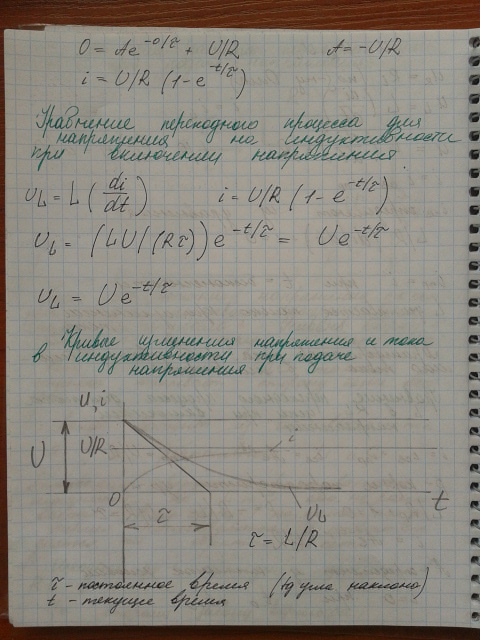 0 = Ae^-0/τ + U/R     A = -U/R
i = U/R (1 - e^-t/τ)
Уравнение переходного процесса для
напряжения на индуктивности
при включении напряжения.
u_L = L (di/dt)     i = U/R (1 - e^-t/τ)
u_L = (LU/(Rτ)) e^-t/τ = Ue^-t/τ
u_L = Ue^-t/τ
Кривые изменения напряжения и тока
в индуктивности при подаче
напряжения
u, i
U
U/R
i
0
t
τ
u_L
τ = L/R
τ - постоянное время (tg угла наклона)
t - текущее время